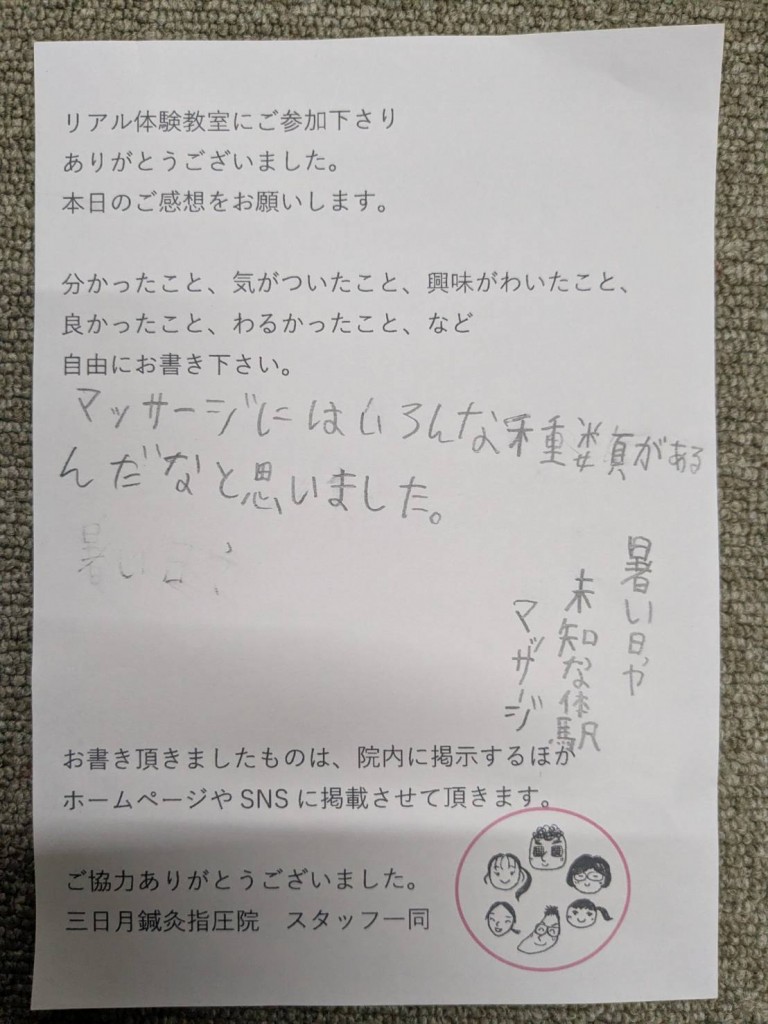 リアル体験教室にご参加下さり
ありがとうございました。
本日のご感想をお願いします。
分かったこと、気がついたこと、興味がわいたこと、
良かったこと、わるかったこと、など
自由にお書き下さい。
マッサージにはいろんな種類がある
んだなと思いました。
暑い日
暑い日や
未知な体験
マッサージ
お書き頂きましたものは、院内に掲示するほか
ホームページやSNSに掲載させて頂きます。
ご協力ありがとうございました。
三日月鍼灸指圧院　スタッフ一同